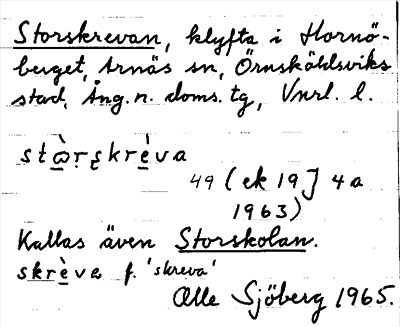 Storskrevan, klyfta i Hornö-
berget, Arnäs sn, Örnsköldsviks
stad, Ång. n. doms. tg, Vnrl. l.
stɷ̀ṛṣkrèva
49 (ek 19J 4a
1963)
Kallas även Storskolan.
skrèva f. 'skreva'
Olle Sjöberg 1965.